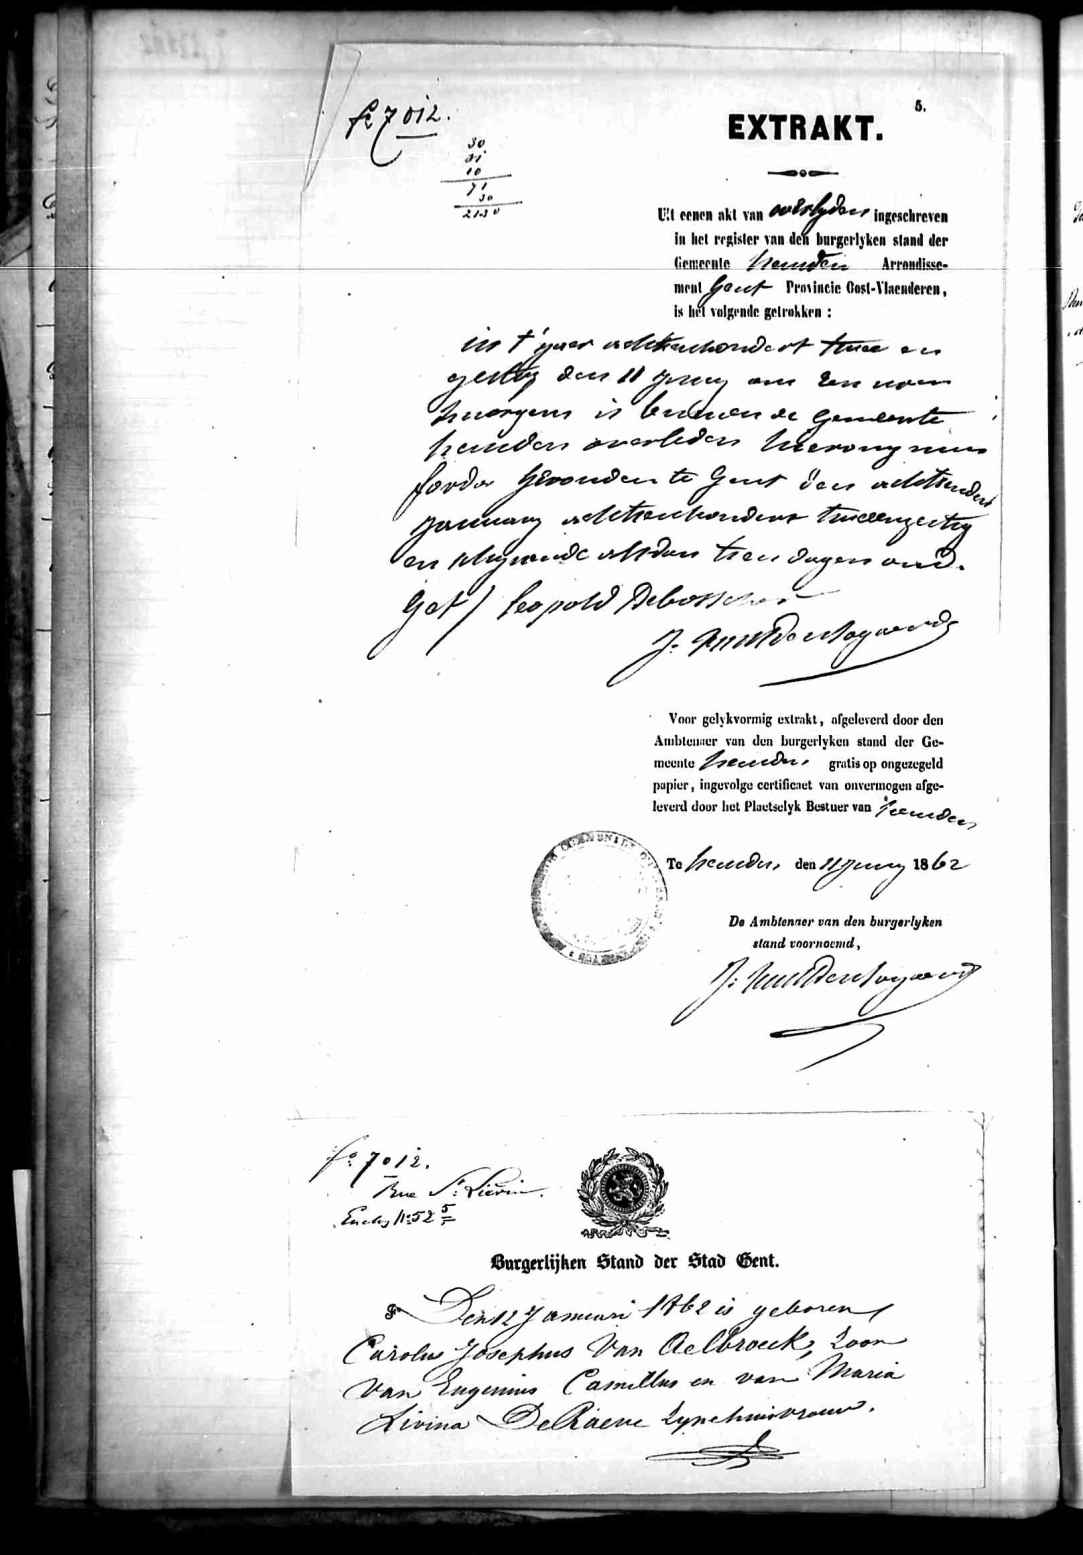 5.
fo 7012.
EXTRAKT.
30
31
10
71
30
2130
Uit eenen akt van overlyden ingeschreven
in het register van den burgerlyken stand der
Gemeente Heusden Arrondisse-
ment Gent Provincie Oost-Vlaenderen,
is het volgende getrokken :
in 't jaer achttienhondert twee en
zestig den 11 Juny om tien uren
's morgens is binnen de gemeente
Heusden overleden Hieronymus
gevonden te Gent den
January achttienhondert tweeenzestig
en alsdan tien dagen oud.
Get/ Leopold Debosscher
J.
Voor gelykvormig extrakt, afgeleverd door den
Ambtenaer van den burgerlyken stand der Ge-
meente Heusden gratis op ongezegeld
papier, ingevolge certificaet van onvermogen afge-
leverd door het Plaetselyk Bestuer van Heusden
Te Heusden den 11 Juny 1862
De Ambtenaer van den burgerlyken
stand voornoemd,
J.
fo 7012.
Rue St. Liévin.
No 52 5
Burgerlijken Stand der Stad Gent.
Den 12 Januari 1862 is geboren
Carolus Josephus Van Aelbroeck, Zoon
van Eugenius Camillus en van Maria
Livina De Raeve Zyne huisvrouw.